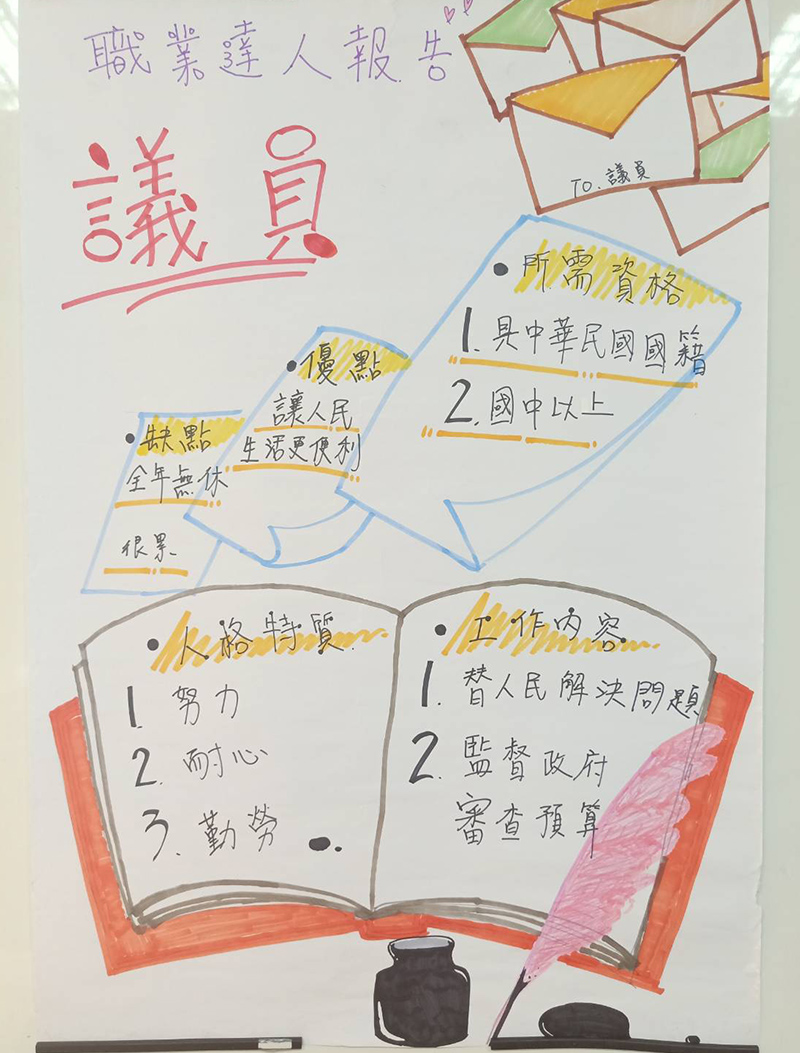 職業達人報告
議員
TO.議員
•所需資格
1.具中華民國國籍
2.國中以上
•優點
讓人民
生活更便利
•缺點
全年無休
很累
•人格特質
1.努力
2.耐心
3.勤勞
•工作內容
1.替人民解決問題
2.監督政府
審查預算